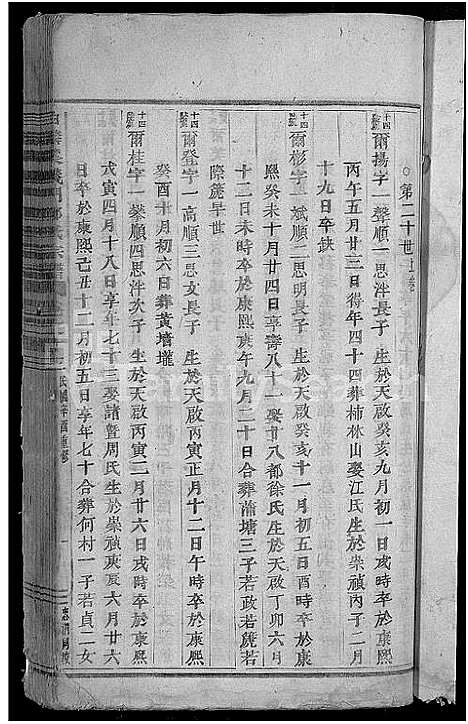 第二十世
十四 爾揚字一聲順一思泮長子 生於天啟癸亥九月初一日戌時卒於康熙
丙午五月廿三日得年四十四葬柿林山娶江氏生於崇禎丙子二月
十九日卒缺
十四 爾彬字一斌順二思明長子 生於天啟癸亥十一月初五日酉時卒於康
熙癸未十月廿四日享壽八十一娶廿八都徐氏生於天啟丁卯六月
十二日未時卒於康熙亥年九月二十日合葬蒲塘三子若政若饒若
際箎早世
十四 爾登字一高順三思文長子 生於天啟丙寅正月十二日午時卒於康熙
癸酉十月初六日葬黃墻壠
十四 爾桂字一攀順四思泮次子 生於天啟丙寅二月廿六日戌時卒於康熙
戊寅四月十八日享年七十三娶諸暨周氏生於崇禎庚辰六月廿六
日卒於康熙己丑十二月初五日享年七十合葬何村一子若貞二女